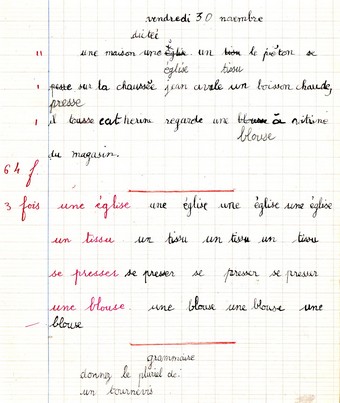 vendredi 30 novembre
dictée
une maison une église un tissu le piéton se
église tissu
presse sur la chaussée jean avale un boisson chaude,
presse
il tousse catherine regarde une blouse à
blouse
du magasin.
64 f.
3 fois une église une église une église une église
un tissu un tissu un tissu un tissu
se presser se presser se presser se presser
une blouse. une blouse une blouse une
blouse
grammaire
donnez le pluriel de:
un tournevis